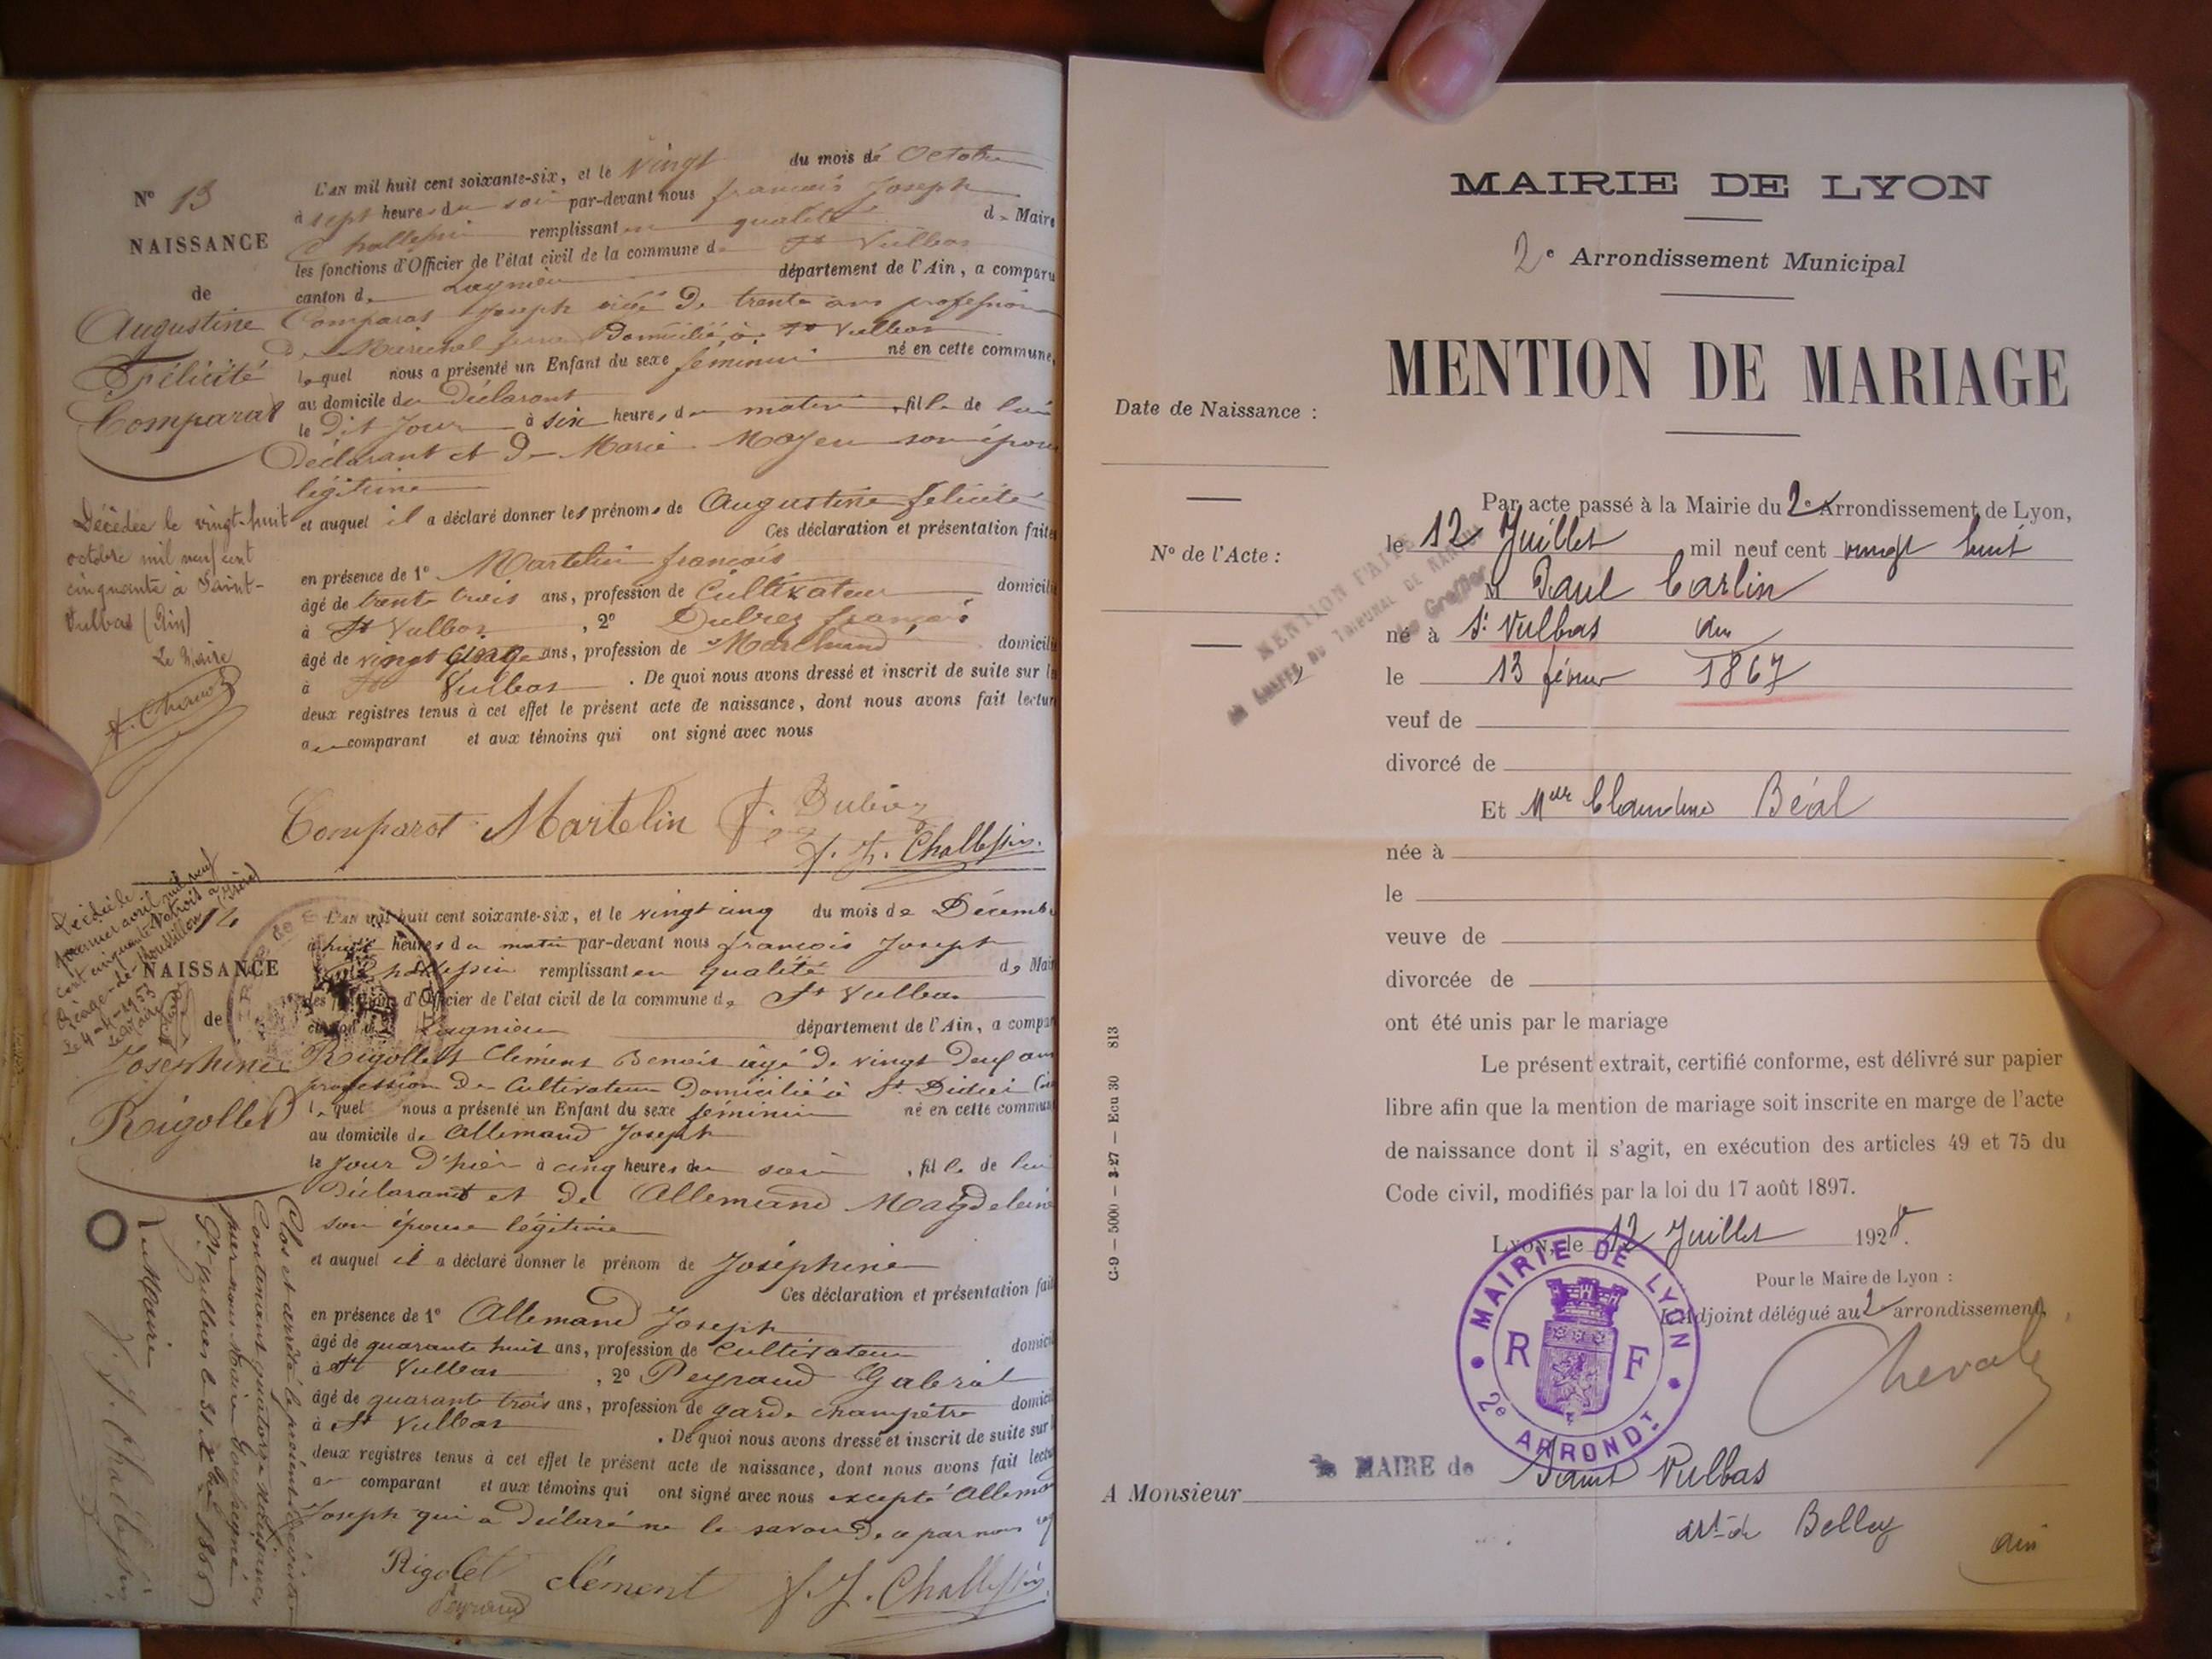 N° 13
NAISSANCE
de
Augustine
Félicité
Comparat
Décédée le vingt-huit
octobre mil neuf cent
cinquante à Saint-
Vulbas (Ain)
Le Maire
L'AN mil huit cent soixante-six, et le Vingt du mois de Octobre
à sept heures du soir par-devant nous francois Joseph
Challessin remplissant en qualité de Maire
les fonctions d'Officier de l'état civil de la commune de St Vulbas
canton de Lagnieu département de l'Ain, a comparu
Comparat Joseph agé de trente ans profession
de Marechal ferra Domicilié à St Vulbas
lequel nous a présenté un Enfant du sexe feminin né en cette commune,
au domicile du Déclarant
le Dit Jour à six heures du matin, fille de lui
Déclarant et de Marie Moyeu son épou
légitime
et auquel il a déclaré donner les prénoms de Augustine felicité
Ces déclaration et présentation faites
en présence de 1° Martelin francois
âgé de trente trois ans, profession de Cultivateur domicili
à St Vulbas, 2° Dubrez françois
âgé de vingt cinq ans, profession de Marchand domicili
à St Vulbas. De quoi nous avons dressé et inscrit de suite sur le
deux registres tenus à cet effet le présent acte de naissance, dont nous avons fait lectur
au comparant et aux témoins qui ont signé avec nous
Comparat Martelin f. F. J. Challessin.
14
NAISSANCE
de
Joséphine
Rigollet
Décédée le
premier avril mil neuf
cent cinquante trois à
Péage-de-Roussillon (Isère)
Le 4-4-1953
Le Maire
L'AN mil huit cent soixante-six, et le vingt cinq du mois de Décemb
à huit heures du matin par-devant nous francois Joseph
Challessin remplissant en qualité de Mai
les fonctions d'Officier de l'état civil de la commune de St Vulbas
canton de Lagnieu département de l'Ain, a compar
Rigollet Clément Benoit agé de vingt deux ans
profession de Cultivateur Domicilié à St Didier
lequel nous a présenté un Enfant du sexe féminin né en cette commun
au domicile de Allemand Joseph
le Jour d'hier à cinq heures du soir, fille de lui
Déclarant et de Allemand Magdeleine
son épouse légitime
et auquel il a déclaré donner le prénom de Joséphine
Ces déclaration et présentation fai
en présence de 1° Allemand Joseph
âgé de quarante huit ans, profession de Cultivateur domici
à St Vulbas, 2° Peyraud Gabriel
âgé de quarante trois ans, profession de garde champêtre domici
à St Vulbas. De quoi nous avons dressé et inscrit de suite sur l
deux registres tenus à cet effet le présent acte de naissance, dont nous avons fait lect
au comparant et aux témoins qui ont signé avec nous excepté Allemand
Joseph qui a Déclaré ne le savoir De ce par nous
Rigolet clément F. J. Challessin.
Peyraud
Clos et arrêté le présent Registre
Contenant quatorze naissances
par nous Maire Soussigné
St Vulbas le 31 Xbre 1866
Le Maire
F. J. Challessin
MAIRIE DE LYON
2e Arrondissement Municipal
MENTION DE MARIAGE
Date de Naissance :
N° de l'Acte :
MENTION FAITE
au GREFFE DU TRIBUNAL DE NANTUA
Le Greffier
Par acte passé à la Mairie du 2e Arrondissement de Lyon,
le 12 Juillet mil neuf cent vingt huit
M Paul Carlin
né à St Vulbas ain
le 13 février 1867
veuf de
divorcé de
Et Melle Claudine Béal
née à
le
veuve de
divorcée de
ont été unis par le mariage
Le présent extrait, certifié conforme, est délivré sur papier
libre afin que la mention de mariage soit inscrite en marge de l'acte
de naissance dont il s'agit, en exécution des articles 49 et 75 du
Code civil, modifiés par la loi du 17 août 1897.
Lyon, le 12 Juillet 1928.
Pour le Maire de Lyon :
L'Adjoint délégué au 2e arrondissement,
MAIRIE DE LYON
R F
2e ARRONDT
le MAIRE de Saint Vulbas
A Monsieur
arrt de Belley
ain
C-9 — 5000 — 3-27 — Ecu 30 813